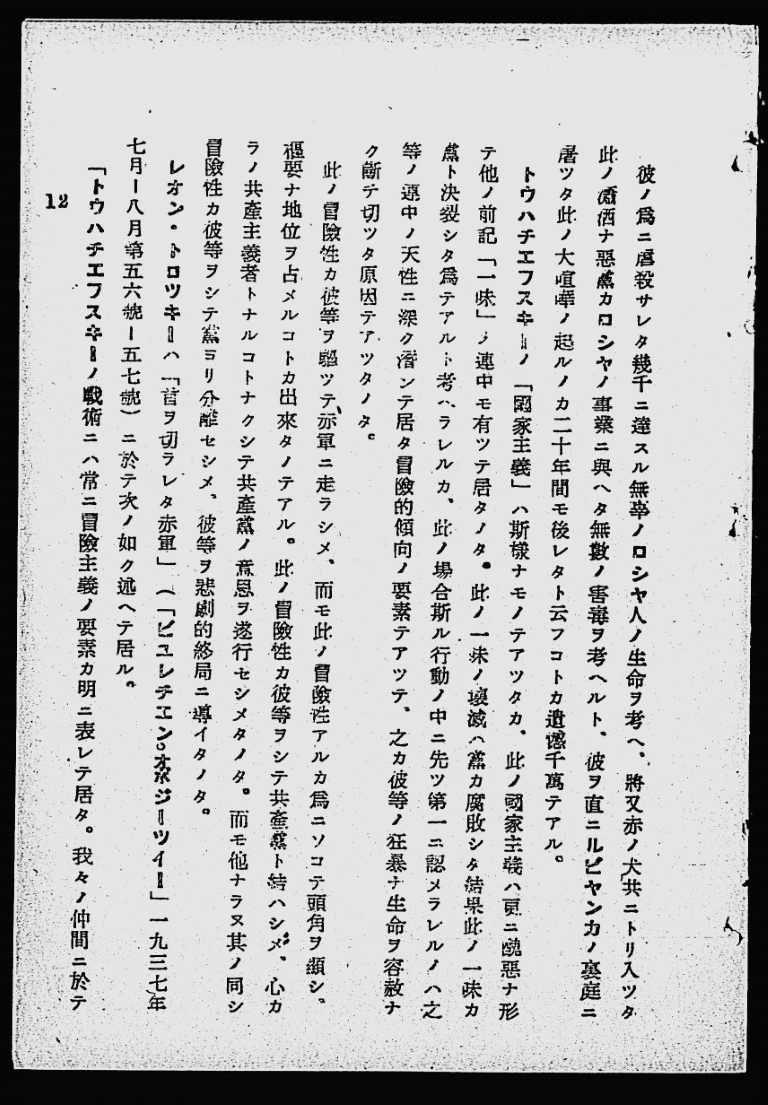 彼ノ爲ニ虐殺サレタ幾千ニ達スル無辜ノロシヤ人ノ生命ヲ考ヘ、將又赤ノ犬共ニトリ入ツタ
此ノ瀟洒ナ惡黨カロシヤノ事業ニ與ヘタ無數ノ害毒ヲ考ヘルト、彼ヲ直ニルビヤンカノ裏庭ニ
屠ツタ此ノ大喧嘩ノ起ルノカ二十年間モ後レタト云フコトカ遺憾千萬テアル。
トウハチエフスキーノ「國家主義」ハ斯樣ナモノテアツタカ、此ノ國家主義ハ更ニ醜惡ナ形
テ他ノ前記「一味」ノ連中モ有ツテ居タノタ。此ノ一味ノ壞滅ハ黨カ腐敗シタ結果此ノ一味カ
黨ト決裂シタ爲テアルト考ヘラレルカ、此ノ場合斯ル行動ノ中ニ先ツ第一ニ認メラレルノハ之
等ノ連中ノ天性ニ深ク潛ンテ居タ冒險的傾向ノ要素テアツテ、之カ彼等ノ狂暴ナ生命ヲ容赦ナ
ク斷チ切ツタ原因テアツタノタ。
此ノ冒險性カ彼等ヲ驅ツテ赤軍ニ走ラシメ、而モ此ノ冒險性アルカ爲ニソコテ頭角ヲ顯シ、
樞要ナ地位ヲ占メルコトカ出來タノテアル。此ノ冒險性カ彼等ヲシテ共產黨ト結ハシメ、心カ
ラノ共產主義者トナルコトナクシテ共產黨ノ意思ヲ遂行セシメタノタ。而モ他ナラヌ其ノ同シ
冒險性カ彼等ヲシテ黨ヨリ分離セシメ、彼等ヲ悲劇的終局ニ導イタノタ。
レオン・トロツキーハ「首ヲ切ラレタ赤軍」(「ビユレチエン。オポジーツイー」一九三七年
七月ー八月第五六號ー五七號)ニ於テ次ノ如ク述ヘテ居ル。
「トウハチエフスキーノ戰術ニハ常ニ冒險主義ノ要素カ明ニ表レテ居タ。我々ノ仲間ニ於テ
12